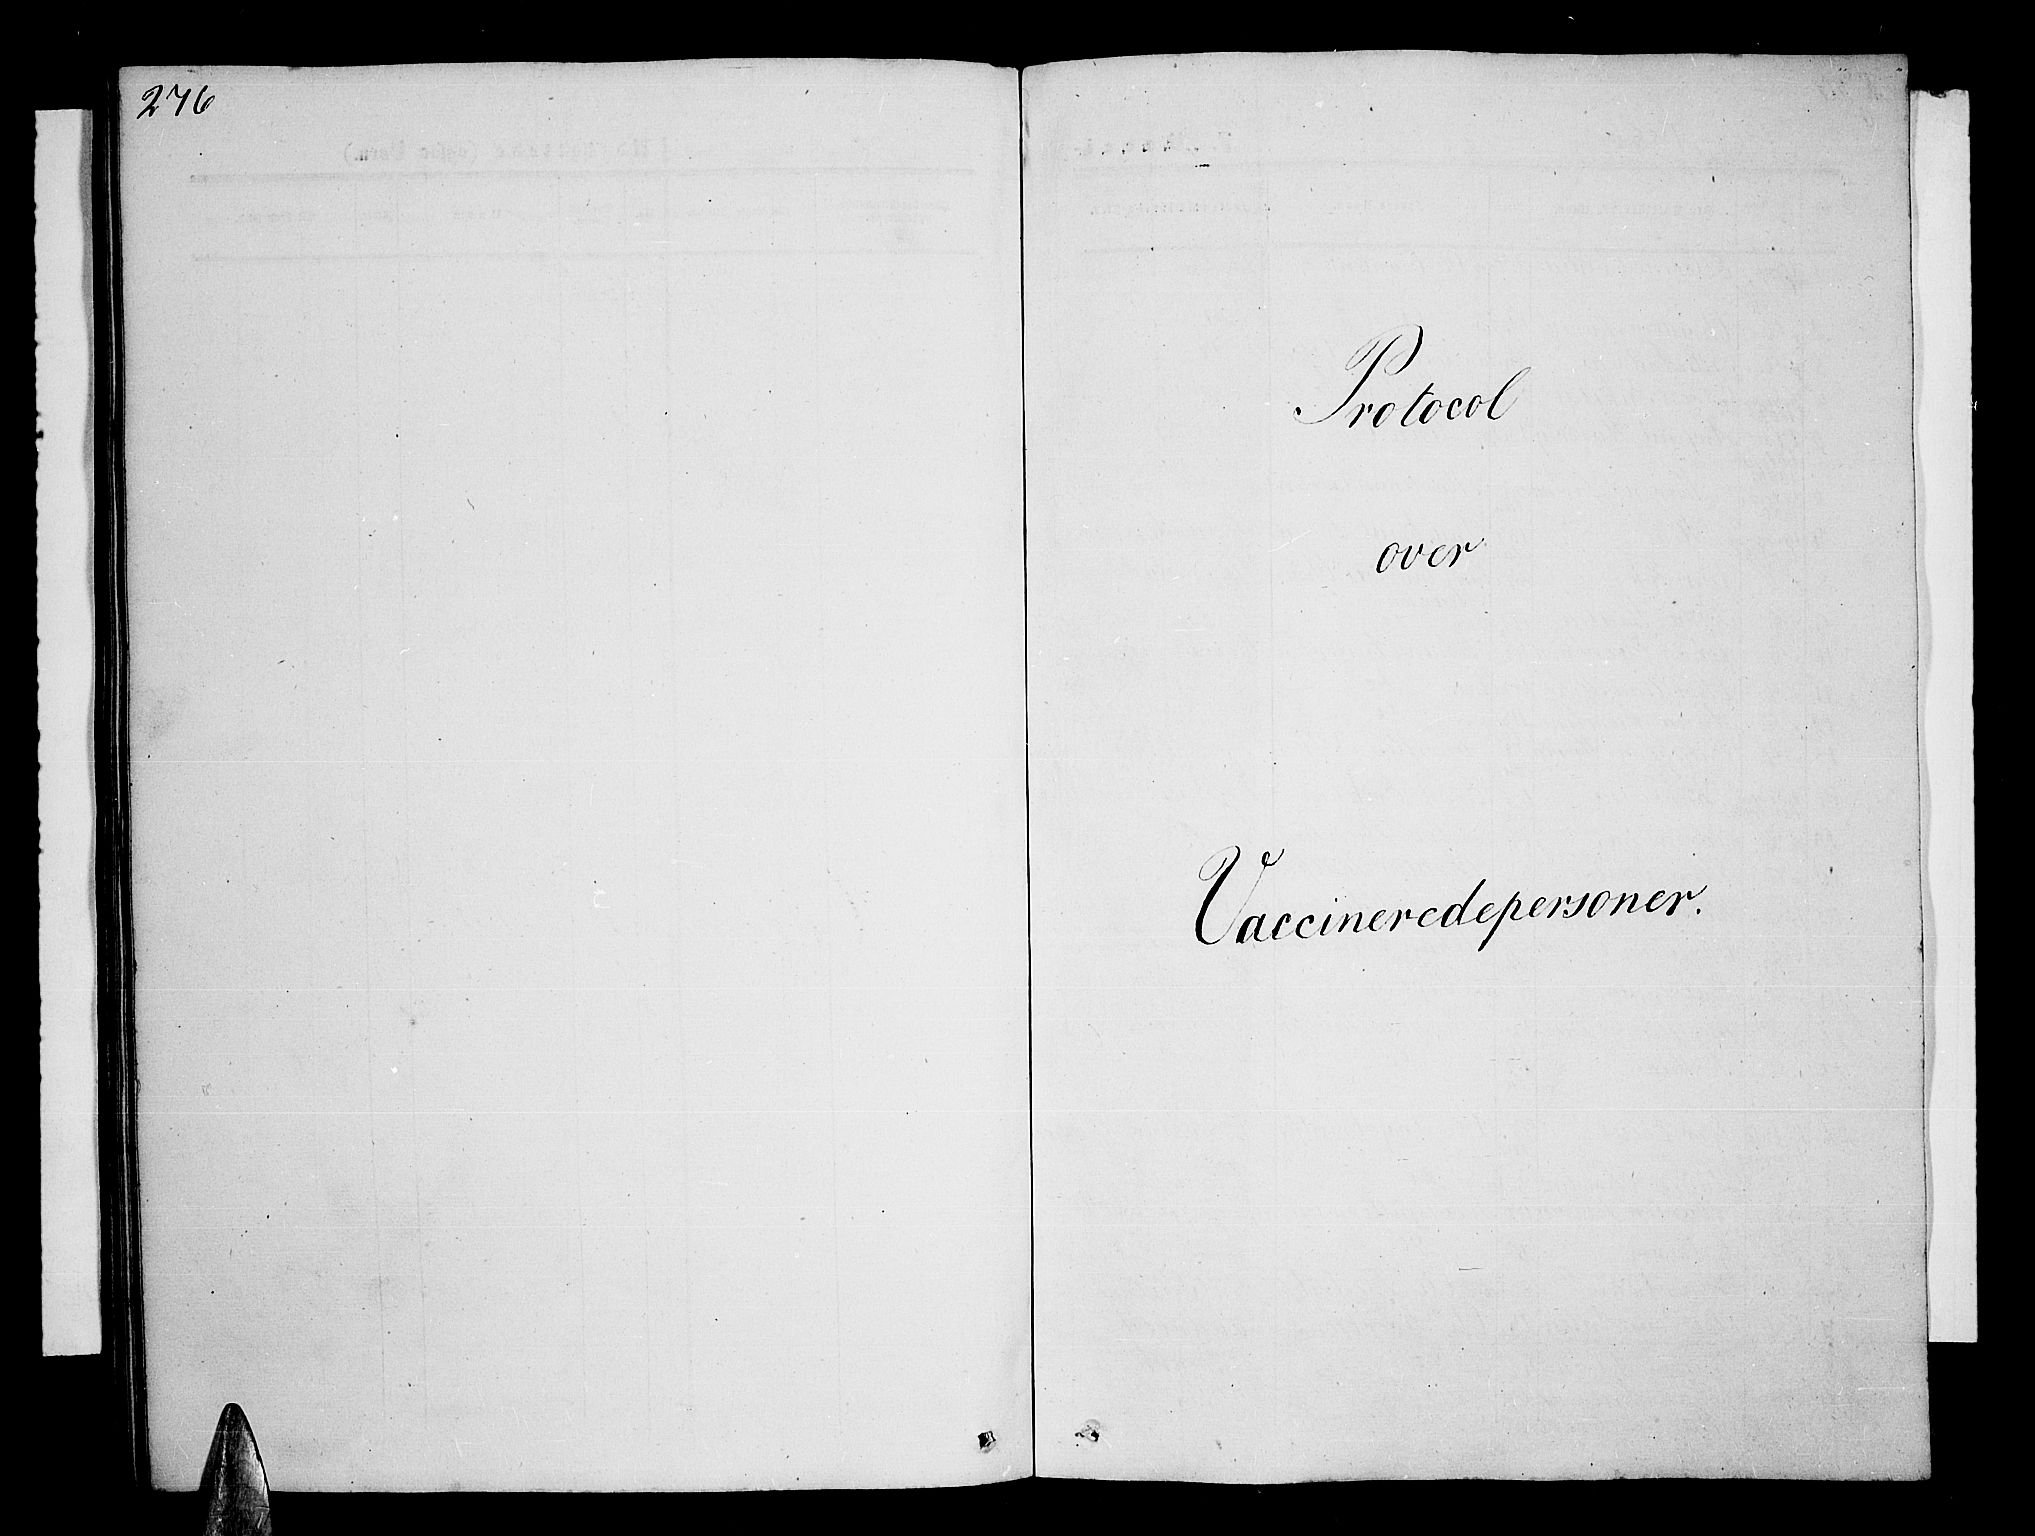 276
Protocol
over
Vaccineredepersoner.